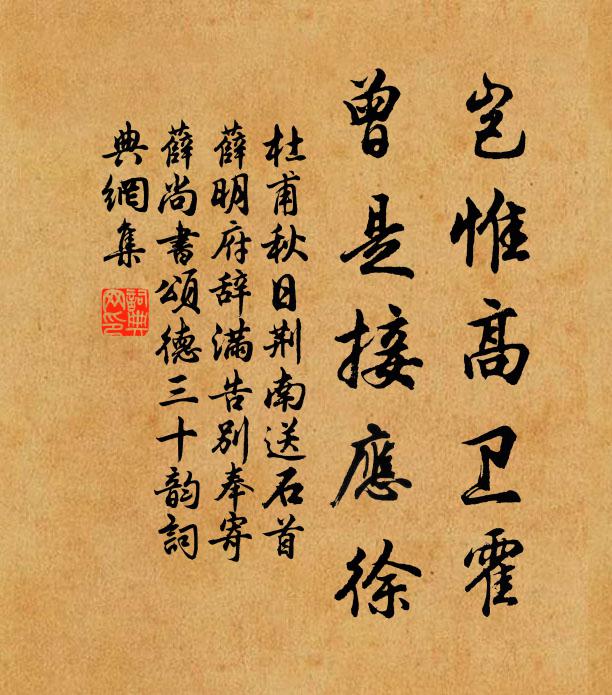 岂惟高卫霍
曾是接應徐
杜甫秋日荆南送石首
薛明府辞满告别奉寄
薛尚書頌德三十韵詞
典網集
詞典
网印